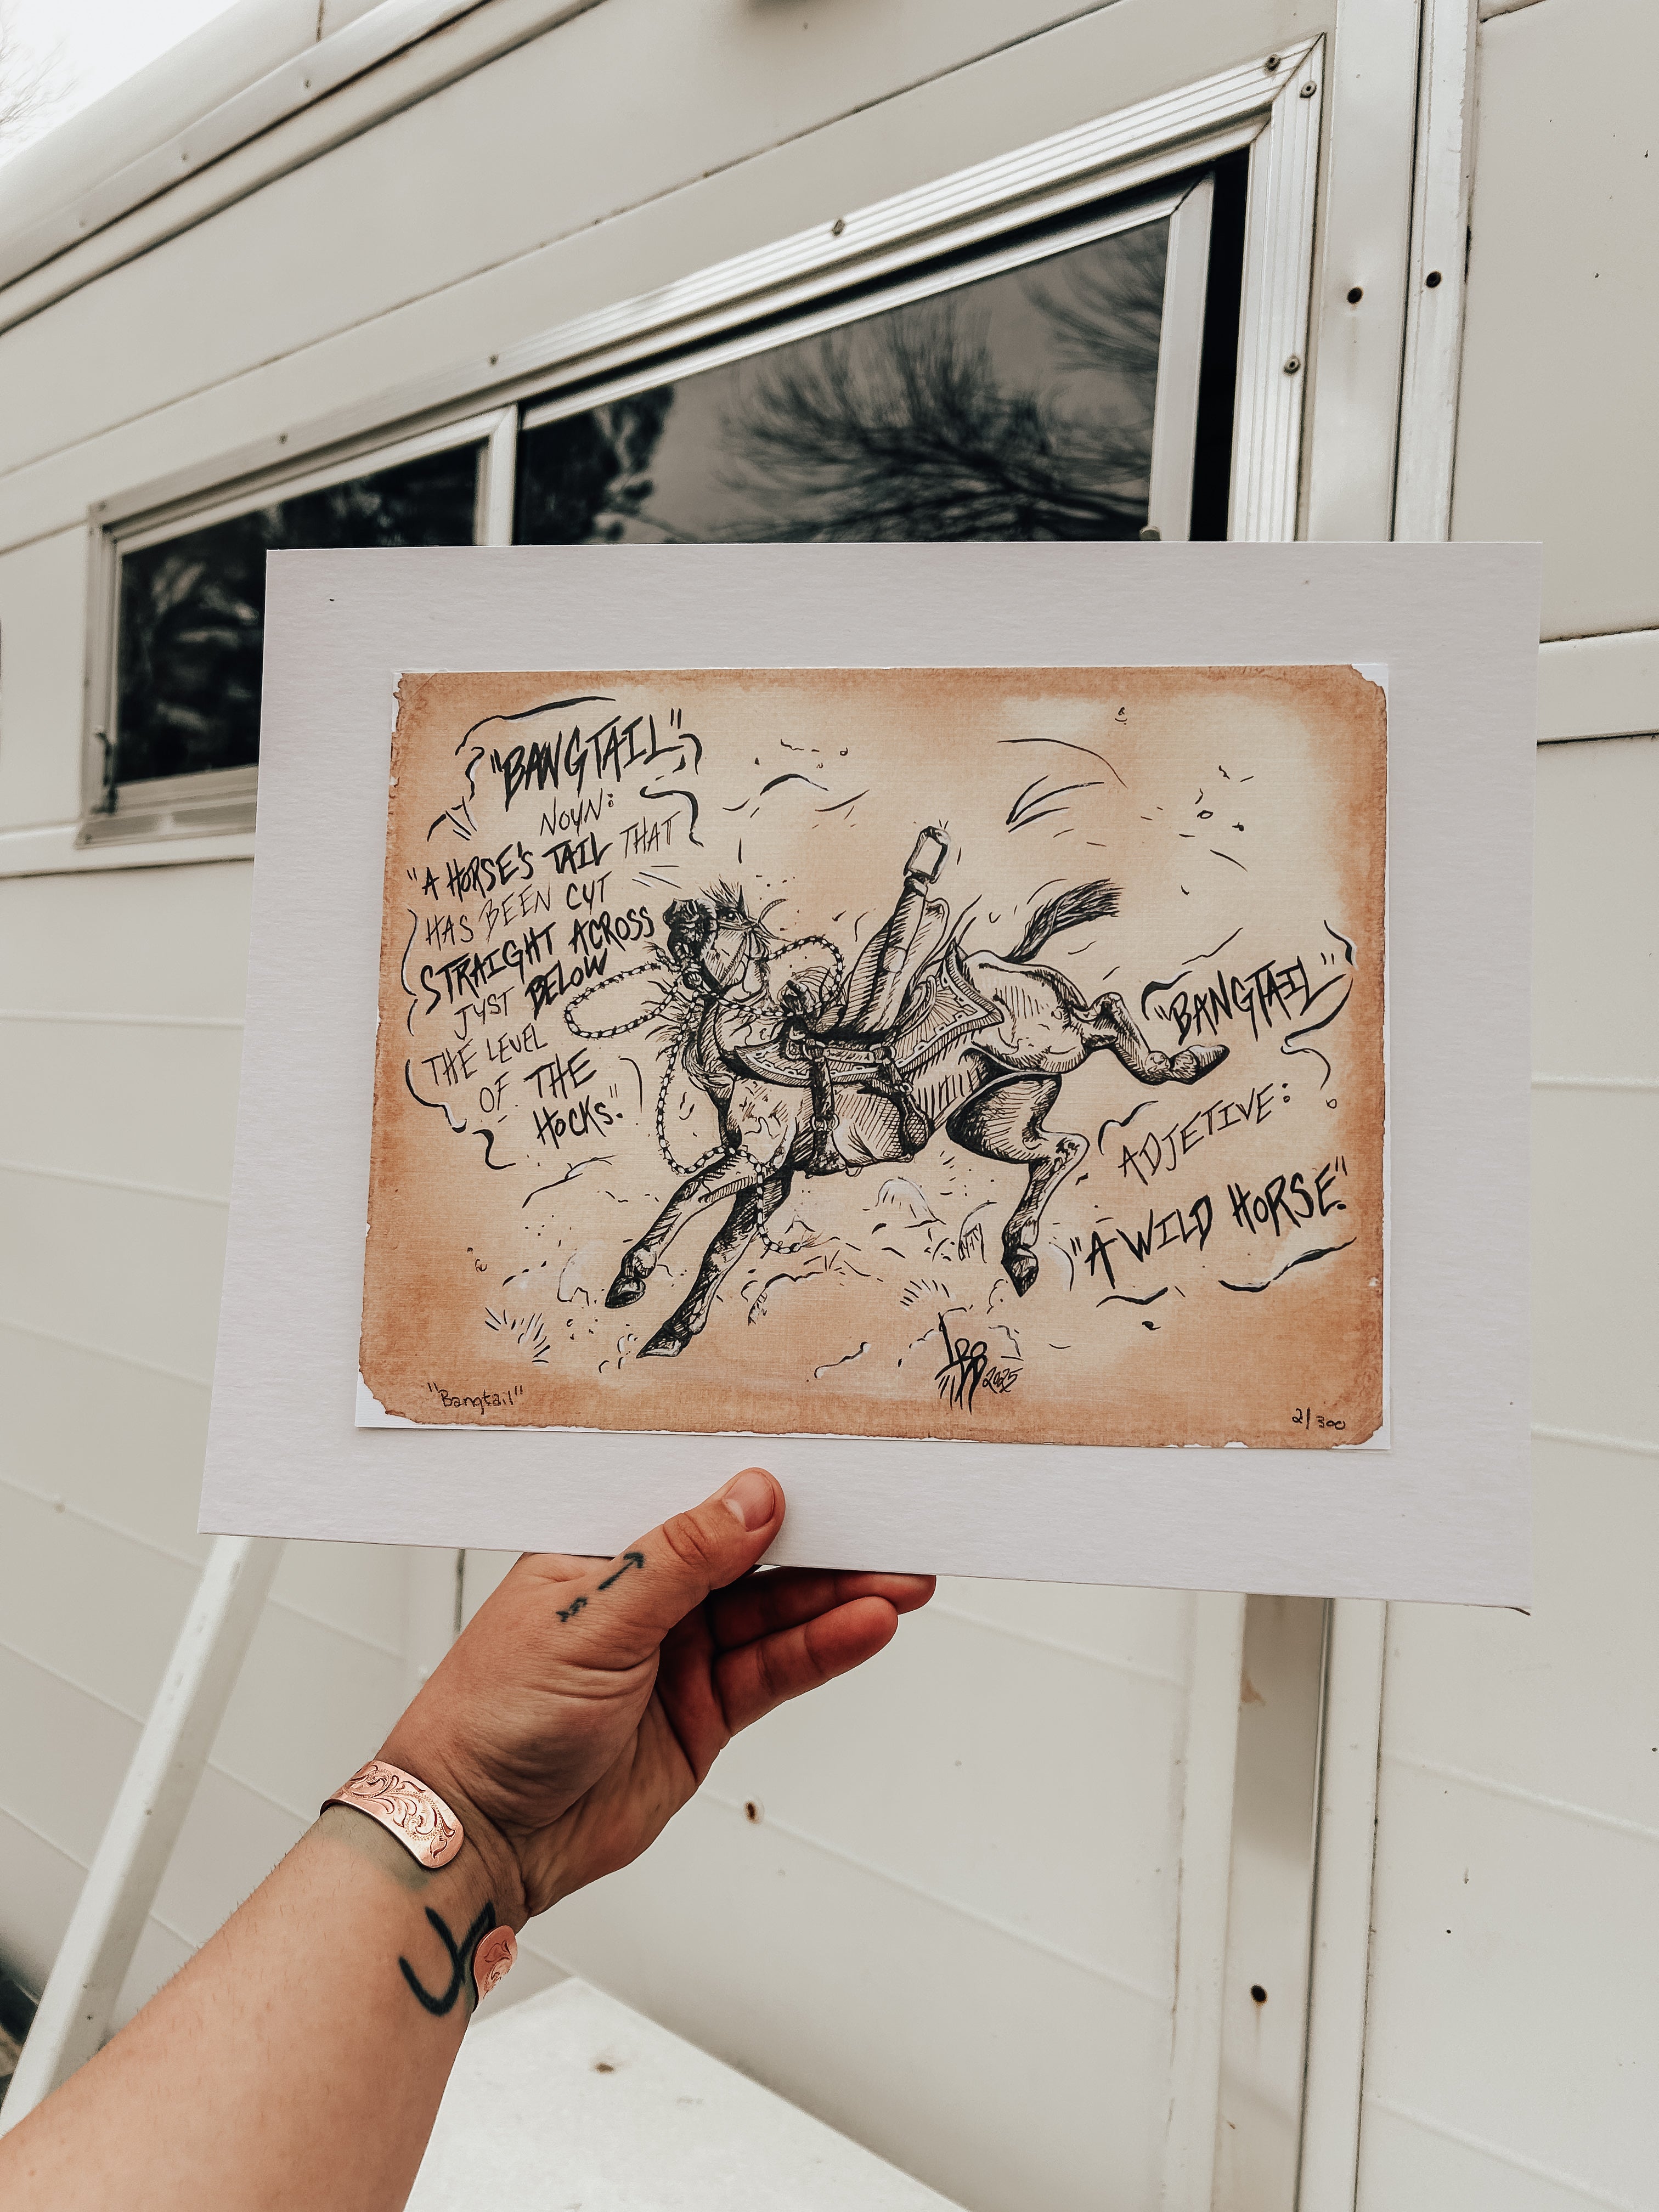 "BANGTAIL"
NOUN:
"A HORSE'S TAIL THAT
HAS BEEN CUT
STRAIGHT ACROSS
JUST BELOW
THE LEVEL
OF THE
HOCKS."
"BANGTAIL"
ADJETIVE:
"A WILD HORSE."
2025
"Bangtail"
2/300